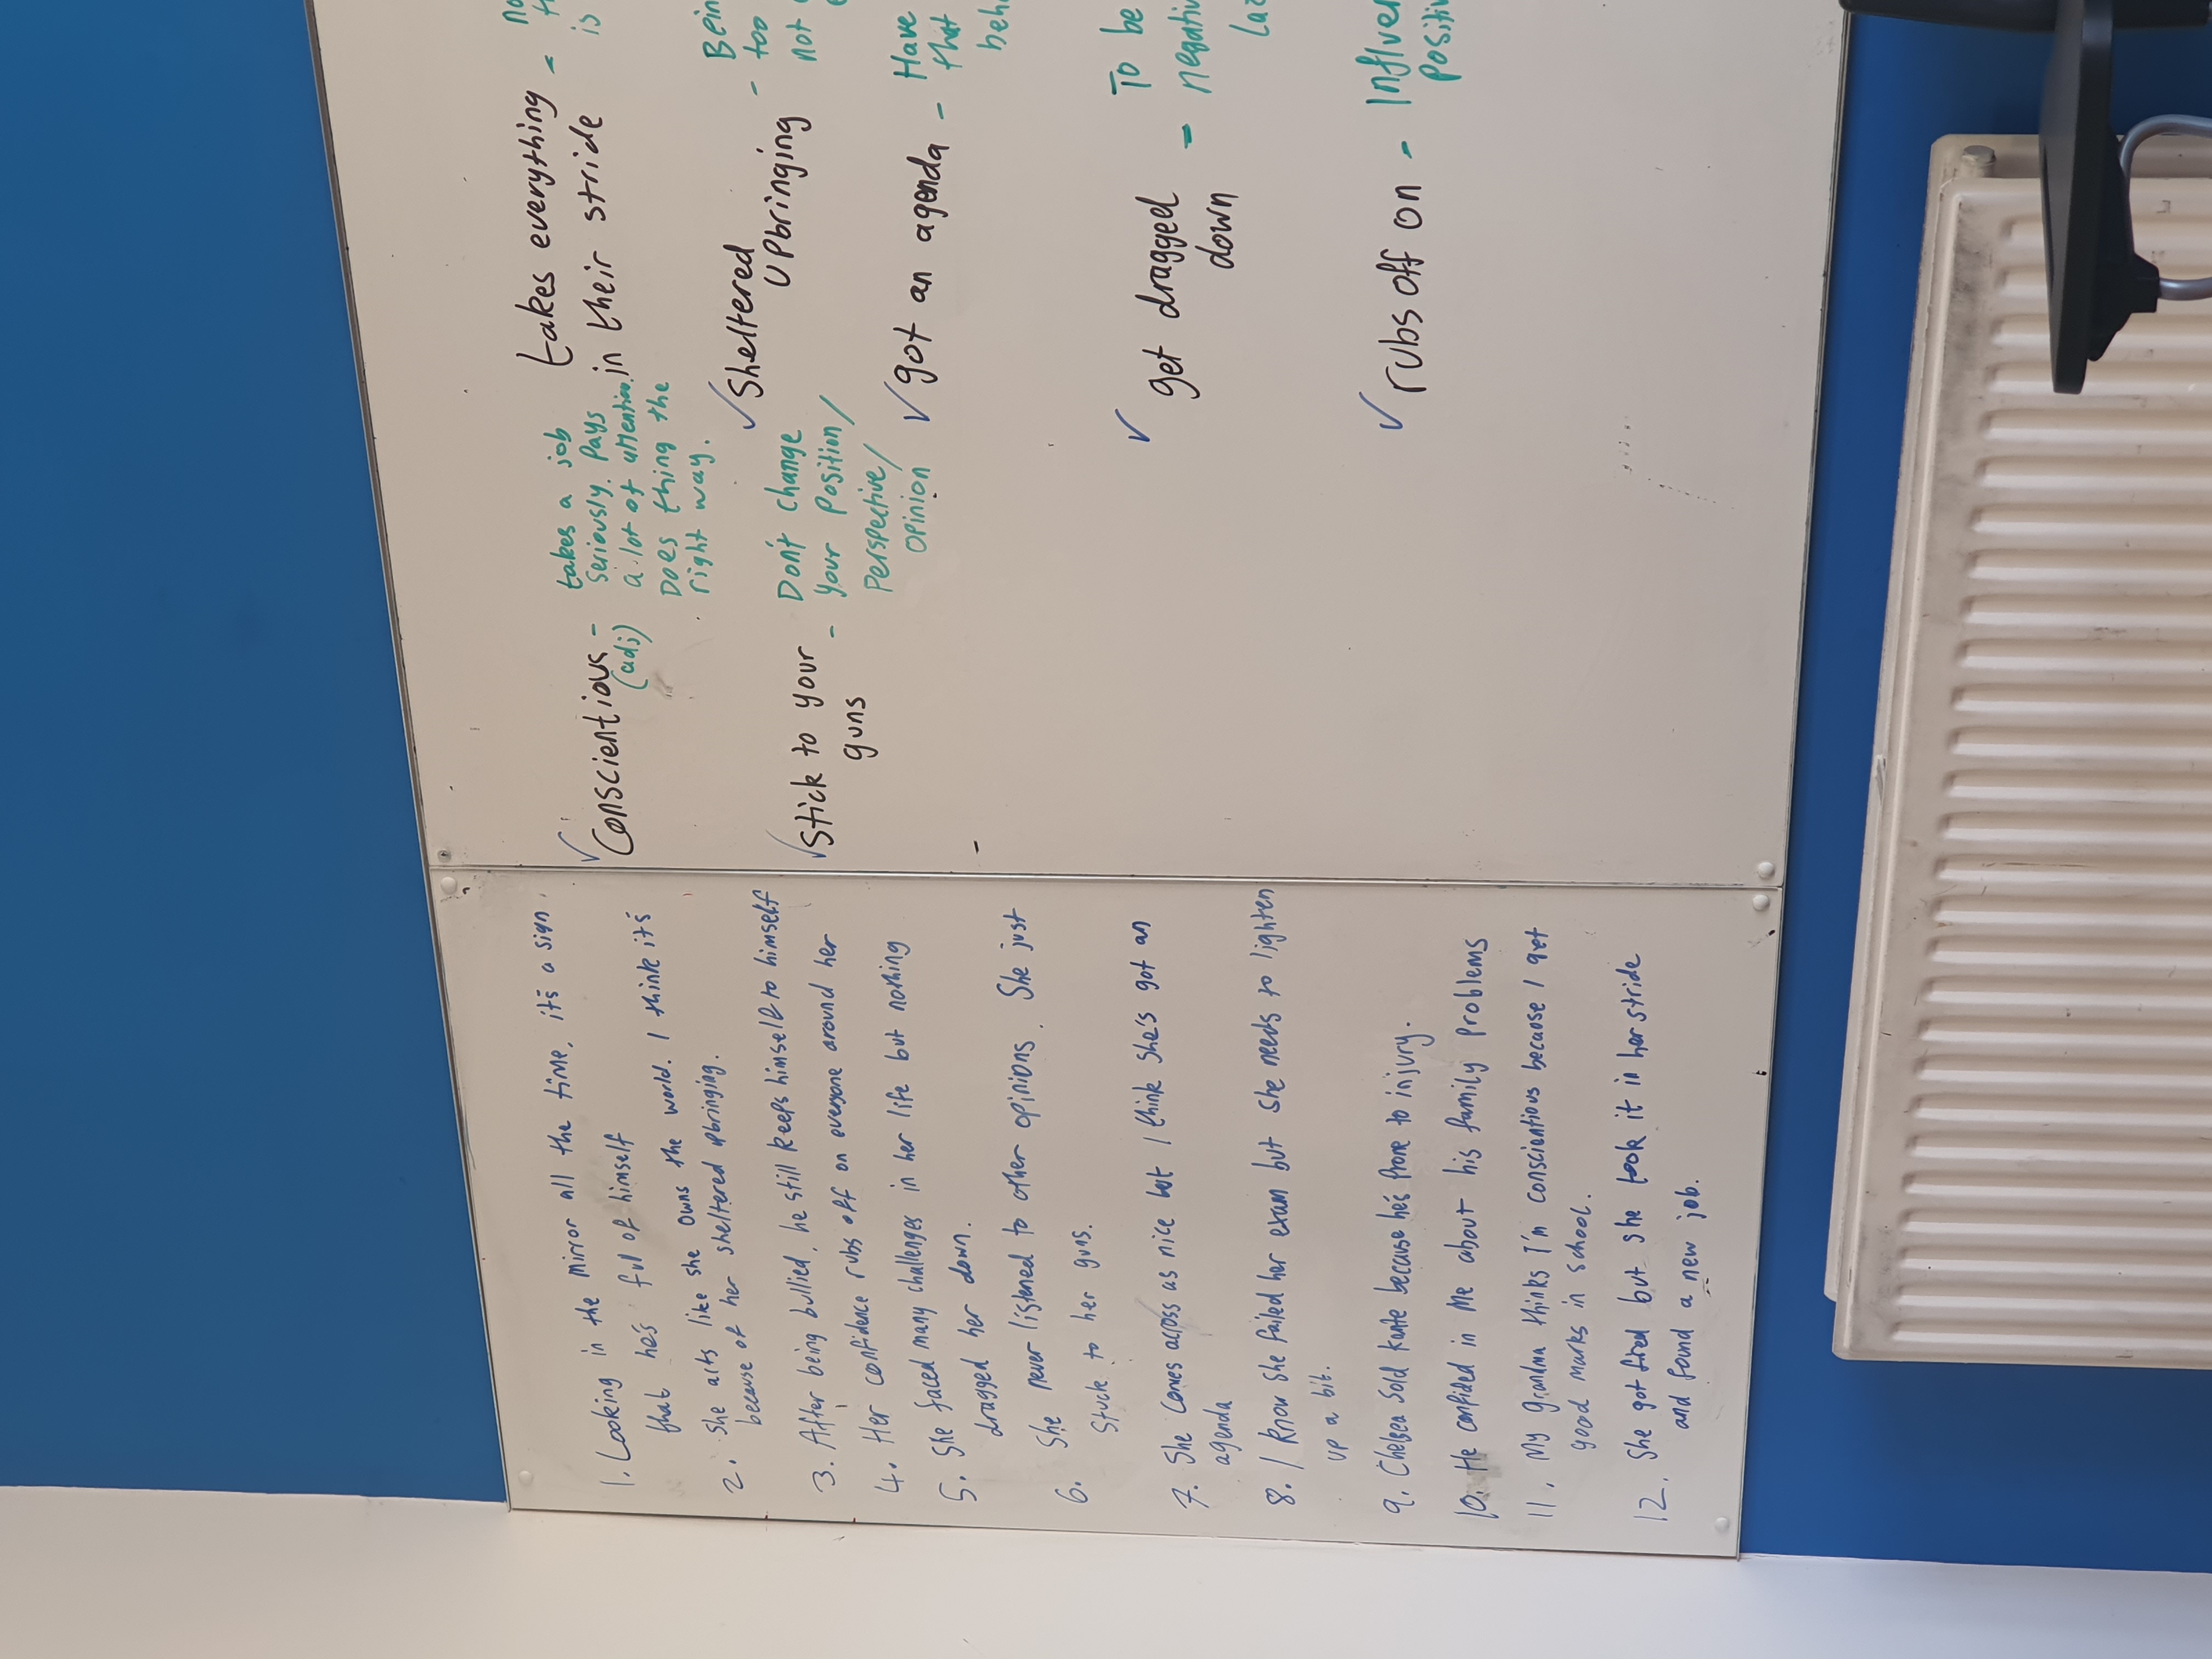 1. Looking in the mirror all the time, it's a sign
that he's full of himself
2. She acts like she owns the world. I think it's
because of her sheltered upbringing.
3. After being bullied, he still keeps himself to himself
4. Her confidence rubs off on everyone around her
5. She faced many challenges in her life but nothing
dragged her down.
6. She never listened to other opinions. She just
stuck to her guns.
7. She comes across as nice but I think she's got an
agenda
8. I know she failed her exam but she needs to lighten
up a bit.
9. Chelsea sold Kante because he's prone to injury.
10. He confided in me about his family problems
11. My grandma thinks I'm conscientious because I get
good marks in school.
12. She got fired but she took it in her stride
and found a new job.
✓ Conscientious -
(adj)
takes a job
seriously. Pays
a lot of attention.
Does thing the
right way.
✓ Stick to your
guns
- Don't change
your position/
perspective/
opinion
takes everything -
in their stride
is
✓ Sheltered
upbringing
- Being
too
not
✓ got an agenda - Have
that
✓ get dragged
down
- To be
✓ rubs off on -